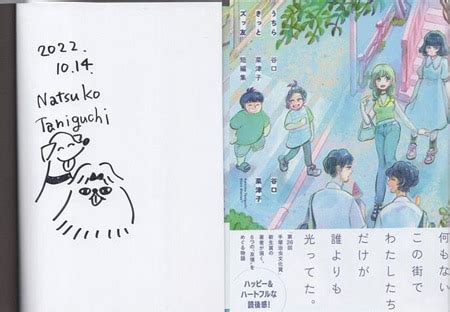 2022.
10.14.
Natsuko
Taniguchi
うちら
きっと
ズッ友
谷口
菜津子
短編集
谷口
菜津子
何もない
この街で
わたしたち
だけが
誰よりも
光ってた。
第26回
手塚治虫文化賞
新生賞の
著者が描く、
6つの、友情を
めぐる物語
ハッピー&
ハートフルな
読後感!